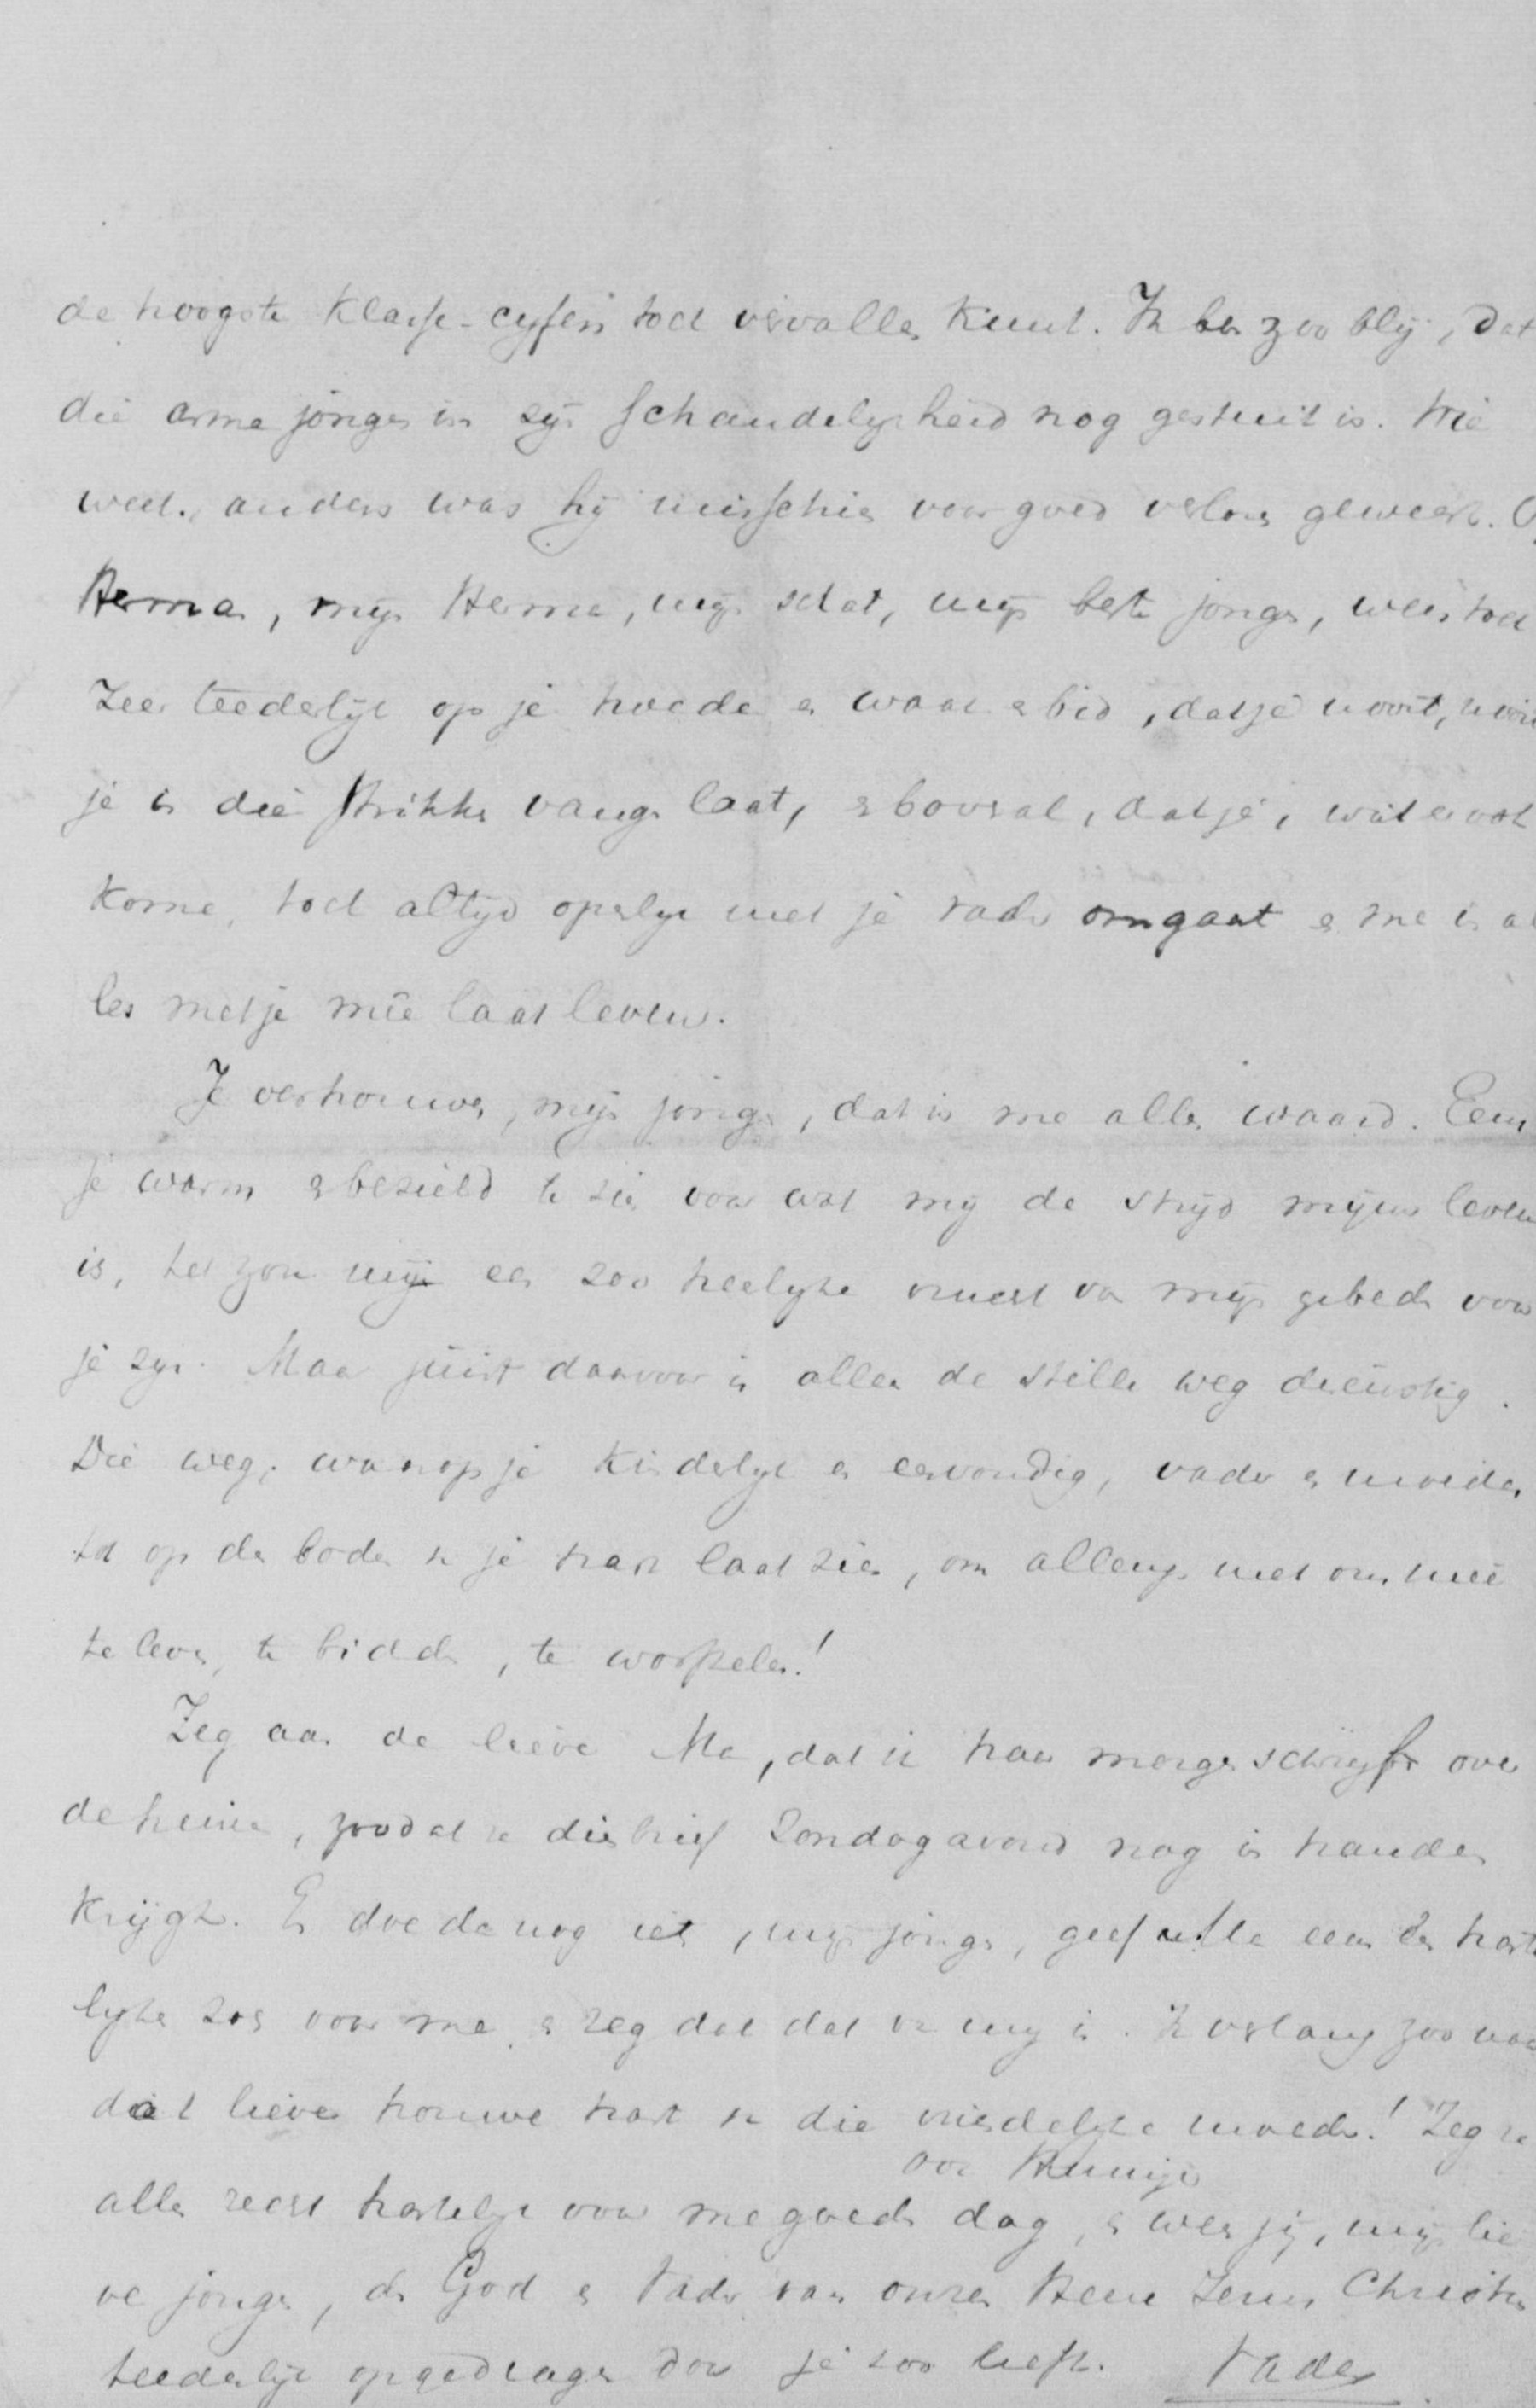 de hoogste klasse-cyfers toch vervallen kunt. Ik ben zoo bly, dat
die arme jongen in zyn schandelykheid nog gestuit is. Wie
weet, anders was hy misschien voor goed verloren geweest. O,
Herman, myn Herman, myn schat, myn beste jongen, wees toch
zeer teederlyk op je hoede en waak en bid, dat je nooit, nooit
je in die strikken vangen laat, en bovenal, dat je, wat er ook
kome, toch altyd openlyk met je vader omgaat en me in al
les met je mêe laat leven.
Je vertrouwen, myn jongen, dat is me alles waard. Eens
je warm en bezield te zien voor wat my de stryd mijns levens
is, het zou mij een zoo heerlyke vrucht van myn gebeden voor
je zyn. Maar juist daarvoor is alleen de stille weg dienstig.
Die weg, waarop je kinderlyk en eenvoudig, vader en moeder
tot op den bodem van je hart laat zien, om allengs met ons meê
te leven, te bidden, te worstelen!
Zeg aan de lieve Ma, dat ik haar morgen schryf over
de reine, zoodat ze dien brief Zondagavond nog in handen
krijgt. En doe dan nog iets, myn jongen, geef ulle eens een harte
lyken zoen voor me, en zeg dat dat van my is. Ik verlang zoo naar
dat lieve trouwe hart van die vriendelyke moeder! Zeg ze
ook
allen recht hartelyk voor me goeden dag, en wees jy, myn lie
ve jongen, den God en Vader van onzen Heere Jezus Christus
teederlyk opgedragen door je zoo liefh. Vader